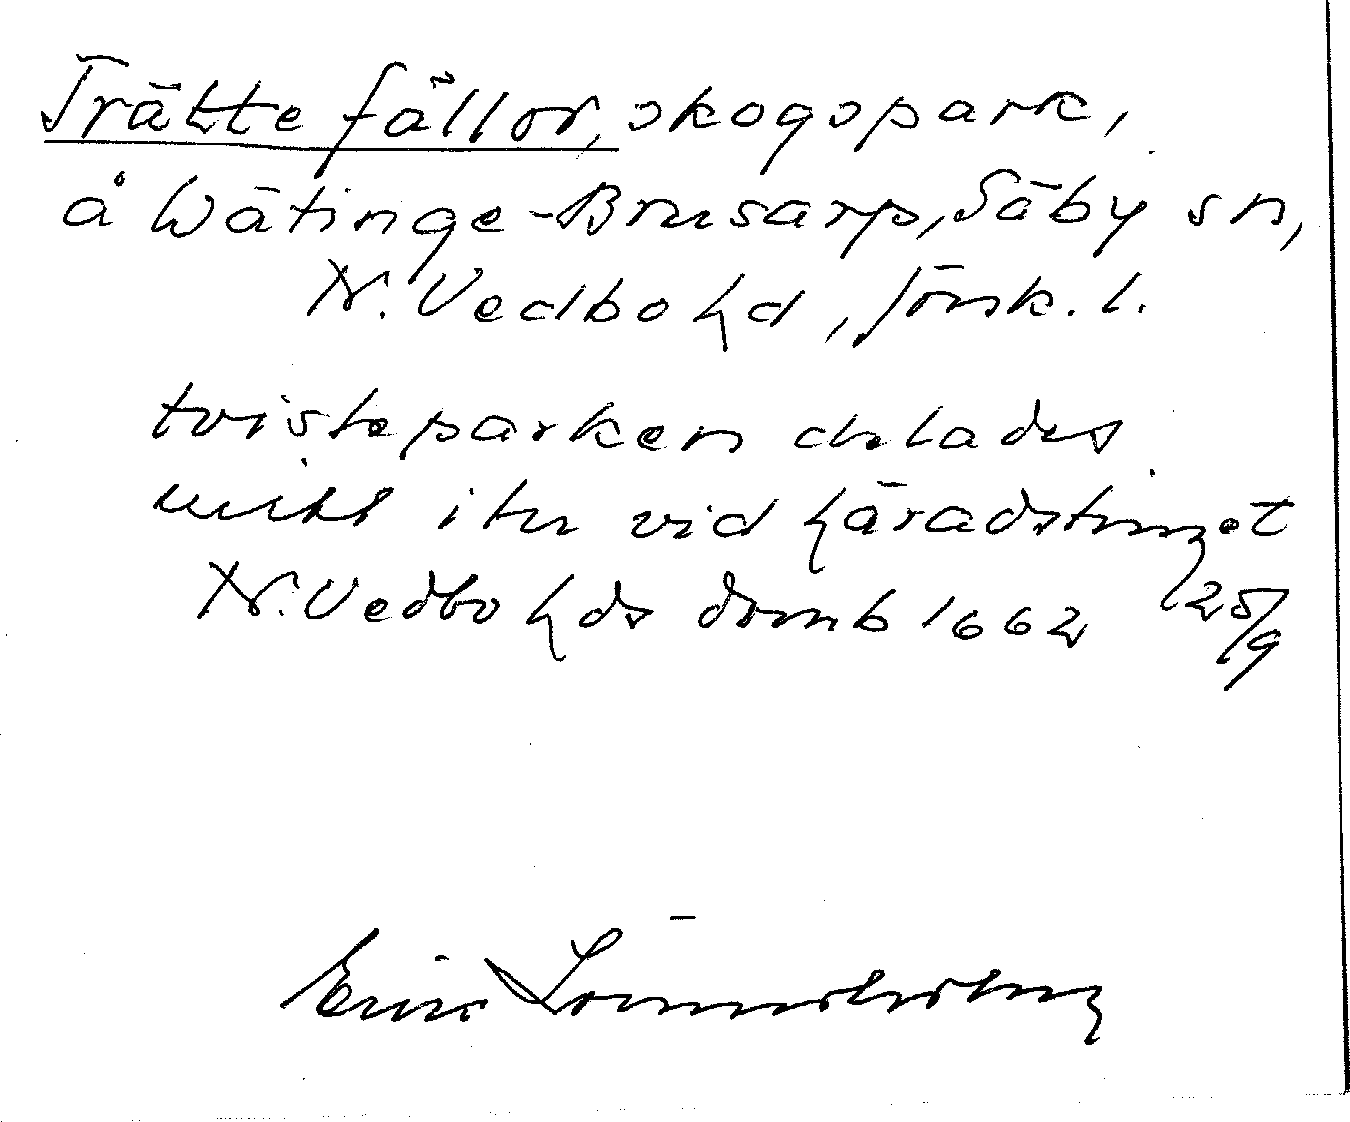 Trätte fållor, skogspark,
å Wätinge-Brusarp, Säby sn,
N. Vedbo hd, Jönk. l.
tvisteparken delades
mitt itu vid häradstinget
N. Vedbo hds domb 1662 25/9